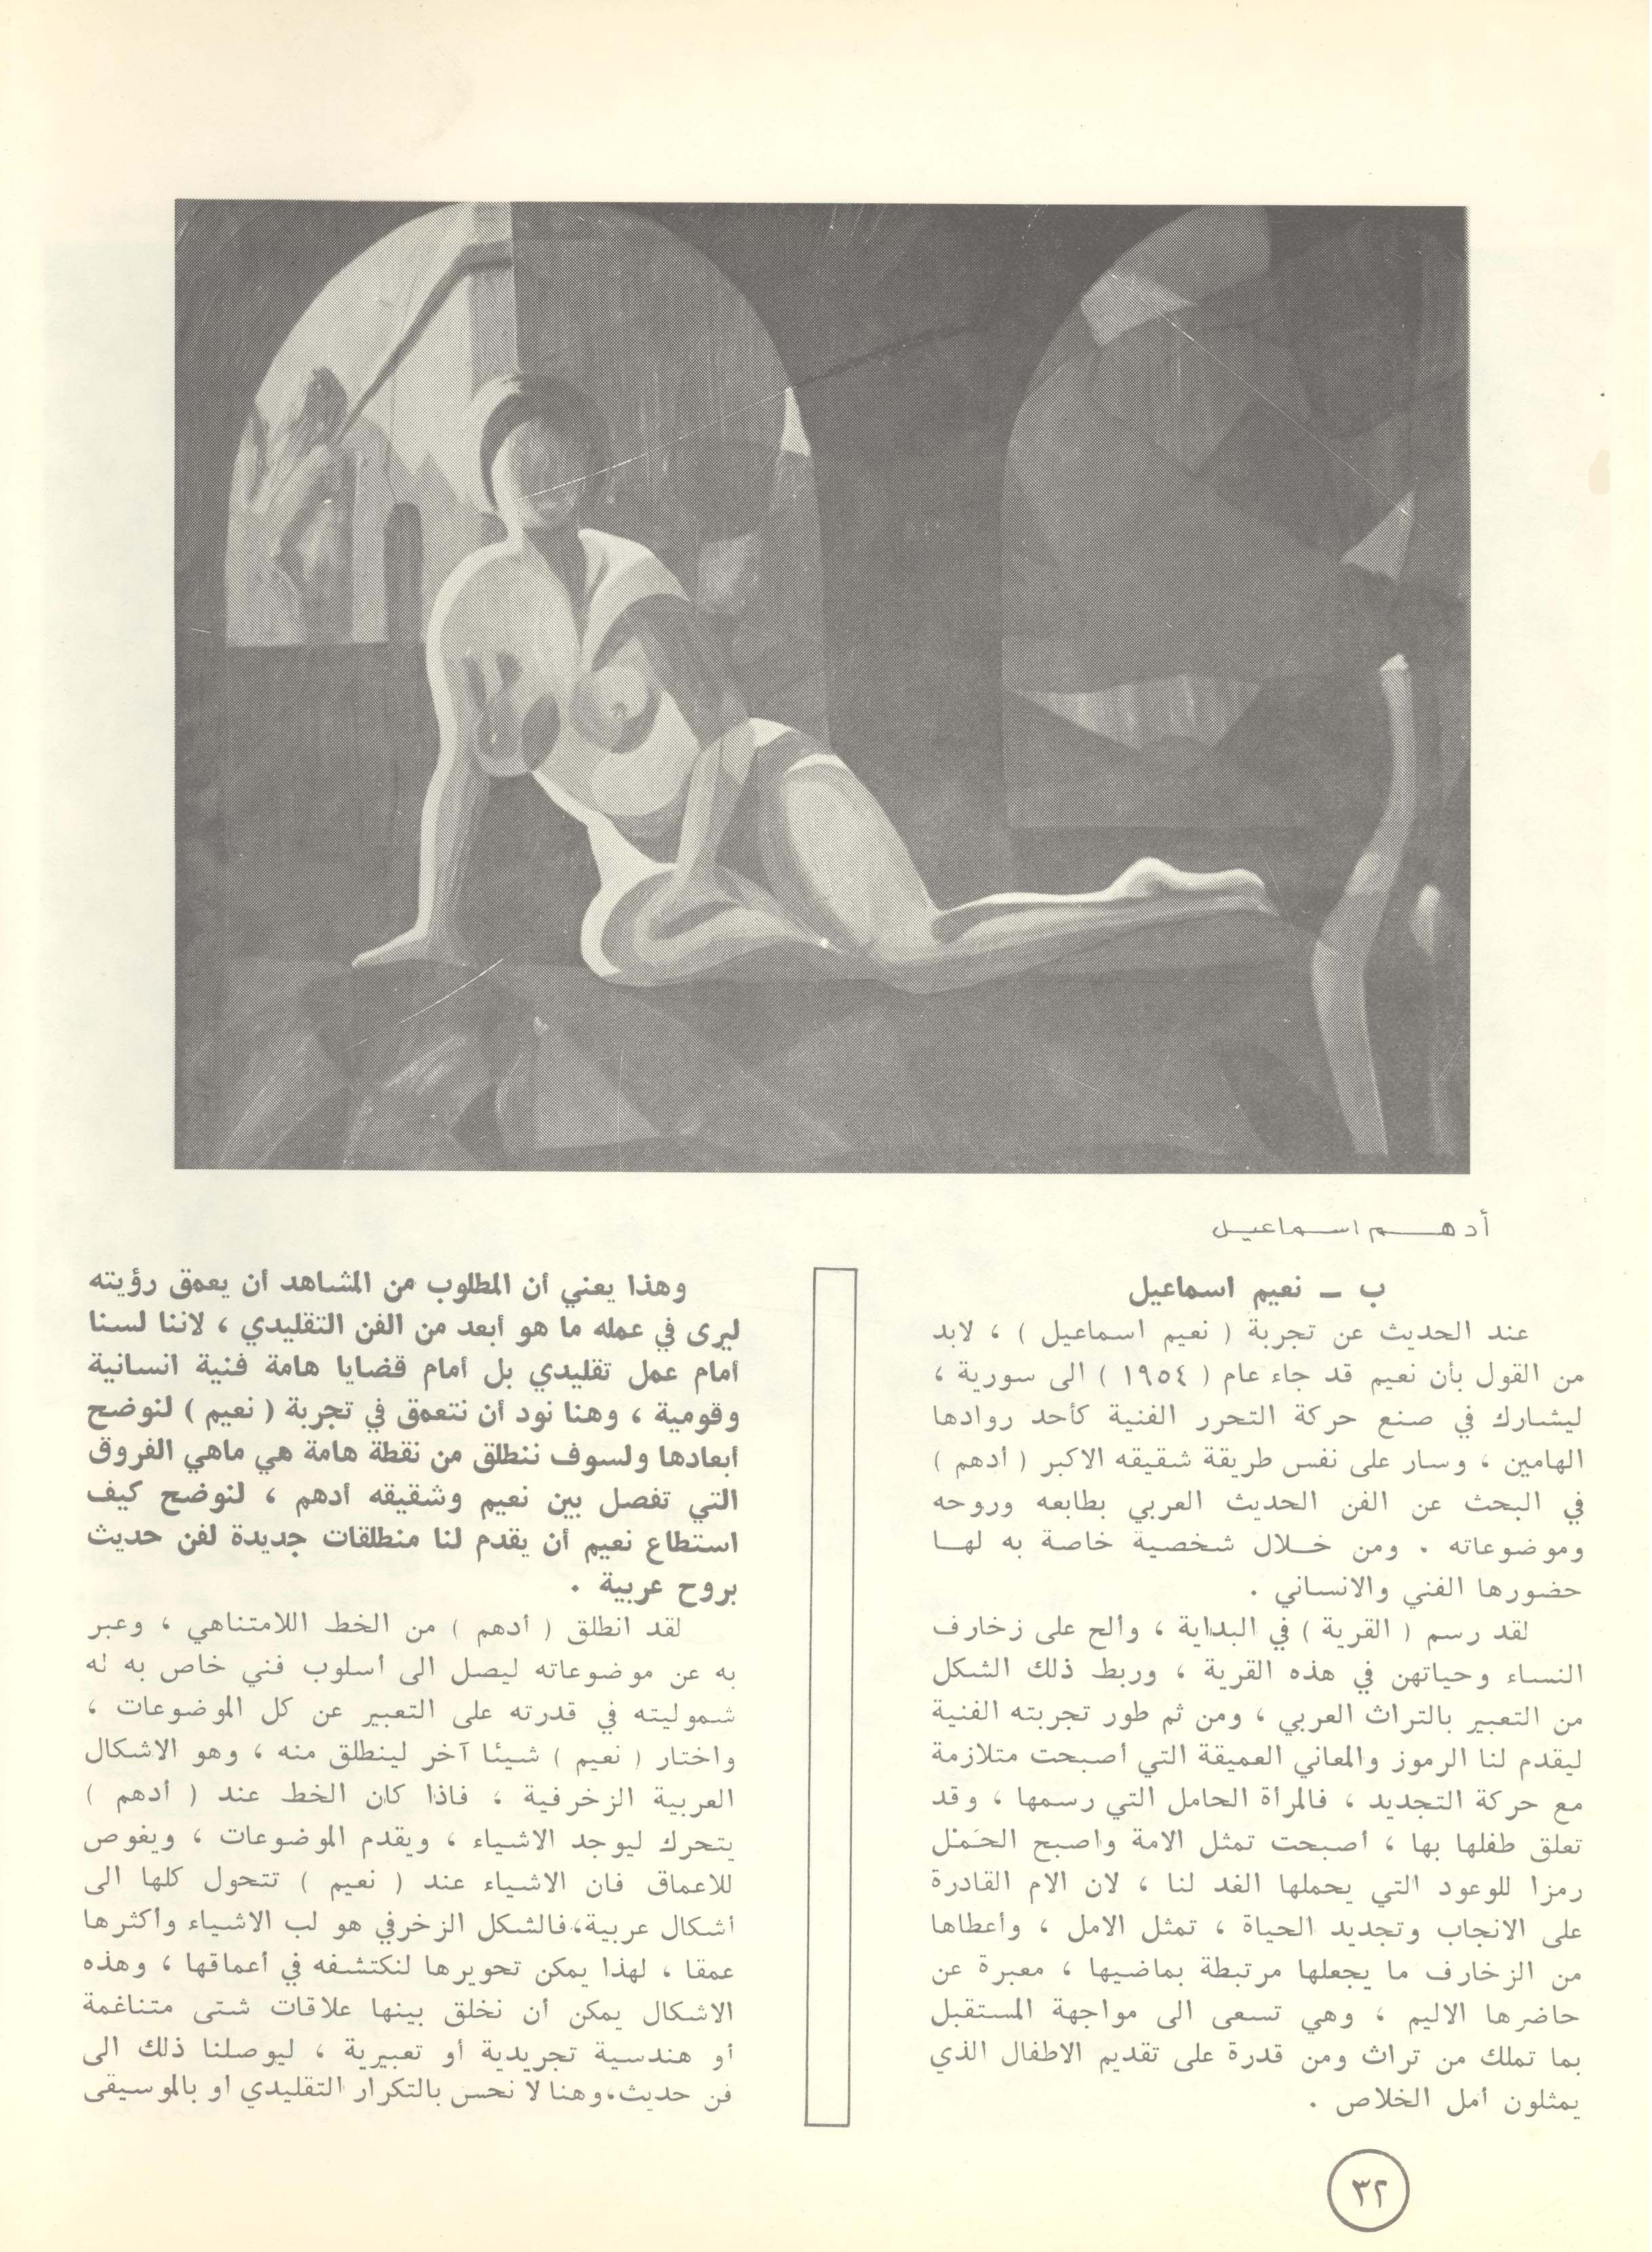 أدهم اسماعيل
ب ــ نعيم اسماعيل
عند الحديث عن تجربة ( نعيم اسماعيل ) ، لابد
من القول بأن نعيم قد جاء عام ( ١٩٥٤ ) الى سورية ،
ليشارك في صنع حركة التحرر الفنية كأحد روادها
الهامين ، وسار على نفس طريقة شقيقه الاكبر ( أدهم )
في البحث عن الفن الحديث العربي بطابعه وروحه
وموضوعاته . ومن خلال شخصية خاصة به لها
حضورها الفني والانساني .
لقد رسم ( القرية ) في البداية ، وألح على زخارف
النساء وحياتهن في هذه القرية ، وربط ذلك الشكل
من التعبير بالتراث العربي ، ومن ثم طور تجربته الفنية
ليقدم لنا الرموز والمعاني العميقة التي أصبحت متلازمة
مع حركة التجديد ، فالمرأة الحامل التي رسمها ، وقد
تعلق طفلها بها ، أصبحت تمثل الامة واصبح الحَمْل
رمزا للوعود التي يحملها الغد لنا ، لان الام القادرة
على الانجاب وتجديد الحياة ، تمثل الامل ، وأعطاها
من الزخارف ما يجعلها مرتبطة بماضيها ، معبرة عن
حاضرها الاليم ، وهي تسعى الى مواجهة المستقبل
بما تملك من تراث ومن قدرة على تقديم الاطفال الذي
يمثلون أمل الخلاص .
وهذا يعني أن المطلوب من المشاهد أن يعمق رؤيته
ليرى في عمله ما هو أبعد من الفن التقليدي ، لاننا لسنا
أمام عمل تقليدي بل أمام قضايا هامة فنية انسانية
وقومية ، وهنا نود أن نتعمق في تجربة ( نعيم ) لنوضح
أبعادها ولسوف ننطلق من نقطة هامة هي ماهي الفروق
التي تفصل بين نعيم وشقيقه أدهم ، لنوضح كيف
استطاع نعيم أن يقدم لنا منطلقات جديدة لفن حديث
بروح عربية .
لقد انطلق ( أدهم ) من الخط اللامتناهي ، وعبر
به عن موضوعاته ليصل الى أسلوب فني خاص به له
شموليته في قدرته على التعبير عن كل الموضوعات ،
واختار ( نعيم ) شيئا آخر لينطلق منه ، وهو الاشكال
العربية الزخرفية ، فاذا كان الخط عند ( أدهم )
يتحرك ليوجد الاشياء ، ويقدم الموضوعات ، ويغوص
للاعماق فان الاشياء عند ( نعيم ) تتحول كلها الى
أشكال عربية، فالشكل الزخرفي هو لب الاشياء وأكثرها
عمقا ، لهذا يمكن تحويرها لنكتشفه في أعماقها ، وهذه
الاشكال يمكن أن نخلق بينها علاقات شتى متناغمة
أو هندسية تجريدية أو تعبيرية ، ليوصلنا ذلك الى
فن حديث.وهنا لا نحس بالتكرار التقليدي او بالموسيقى
٣٢